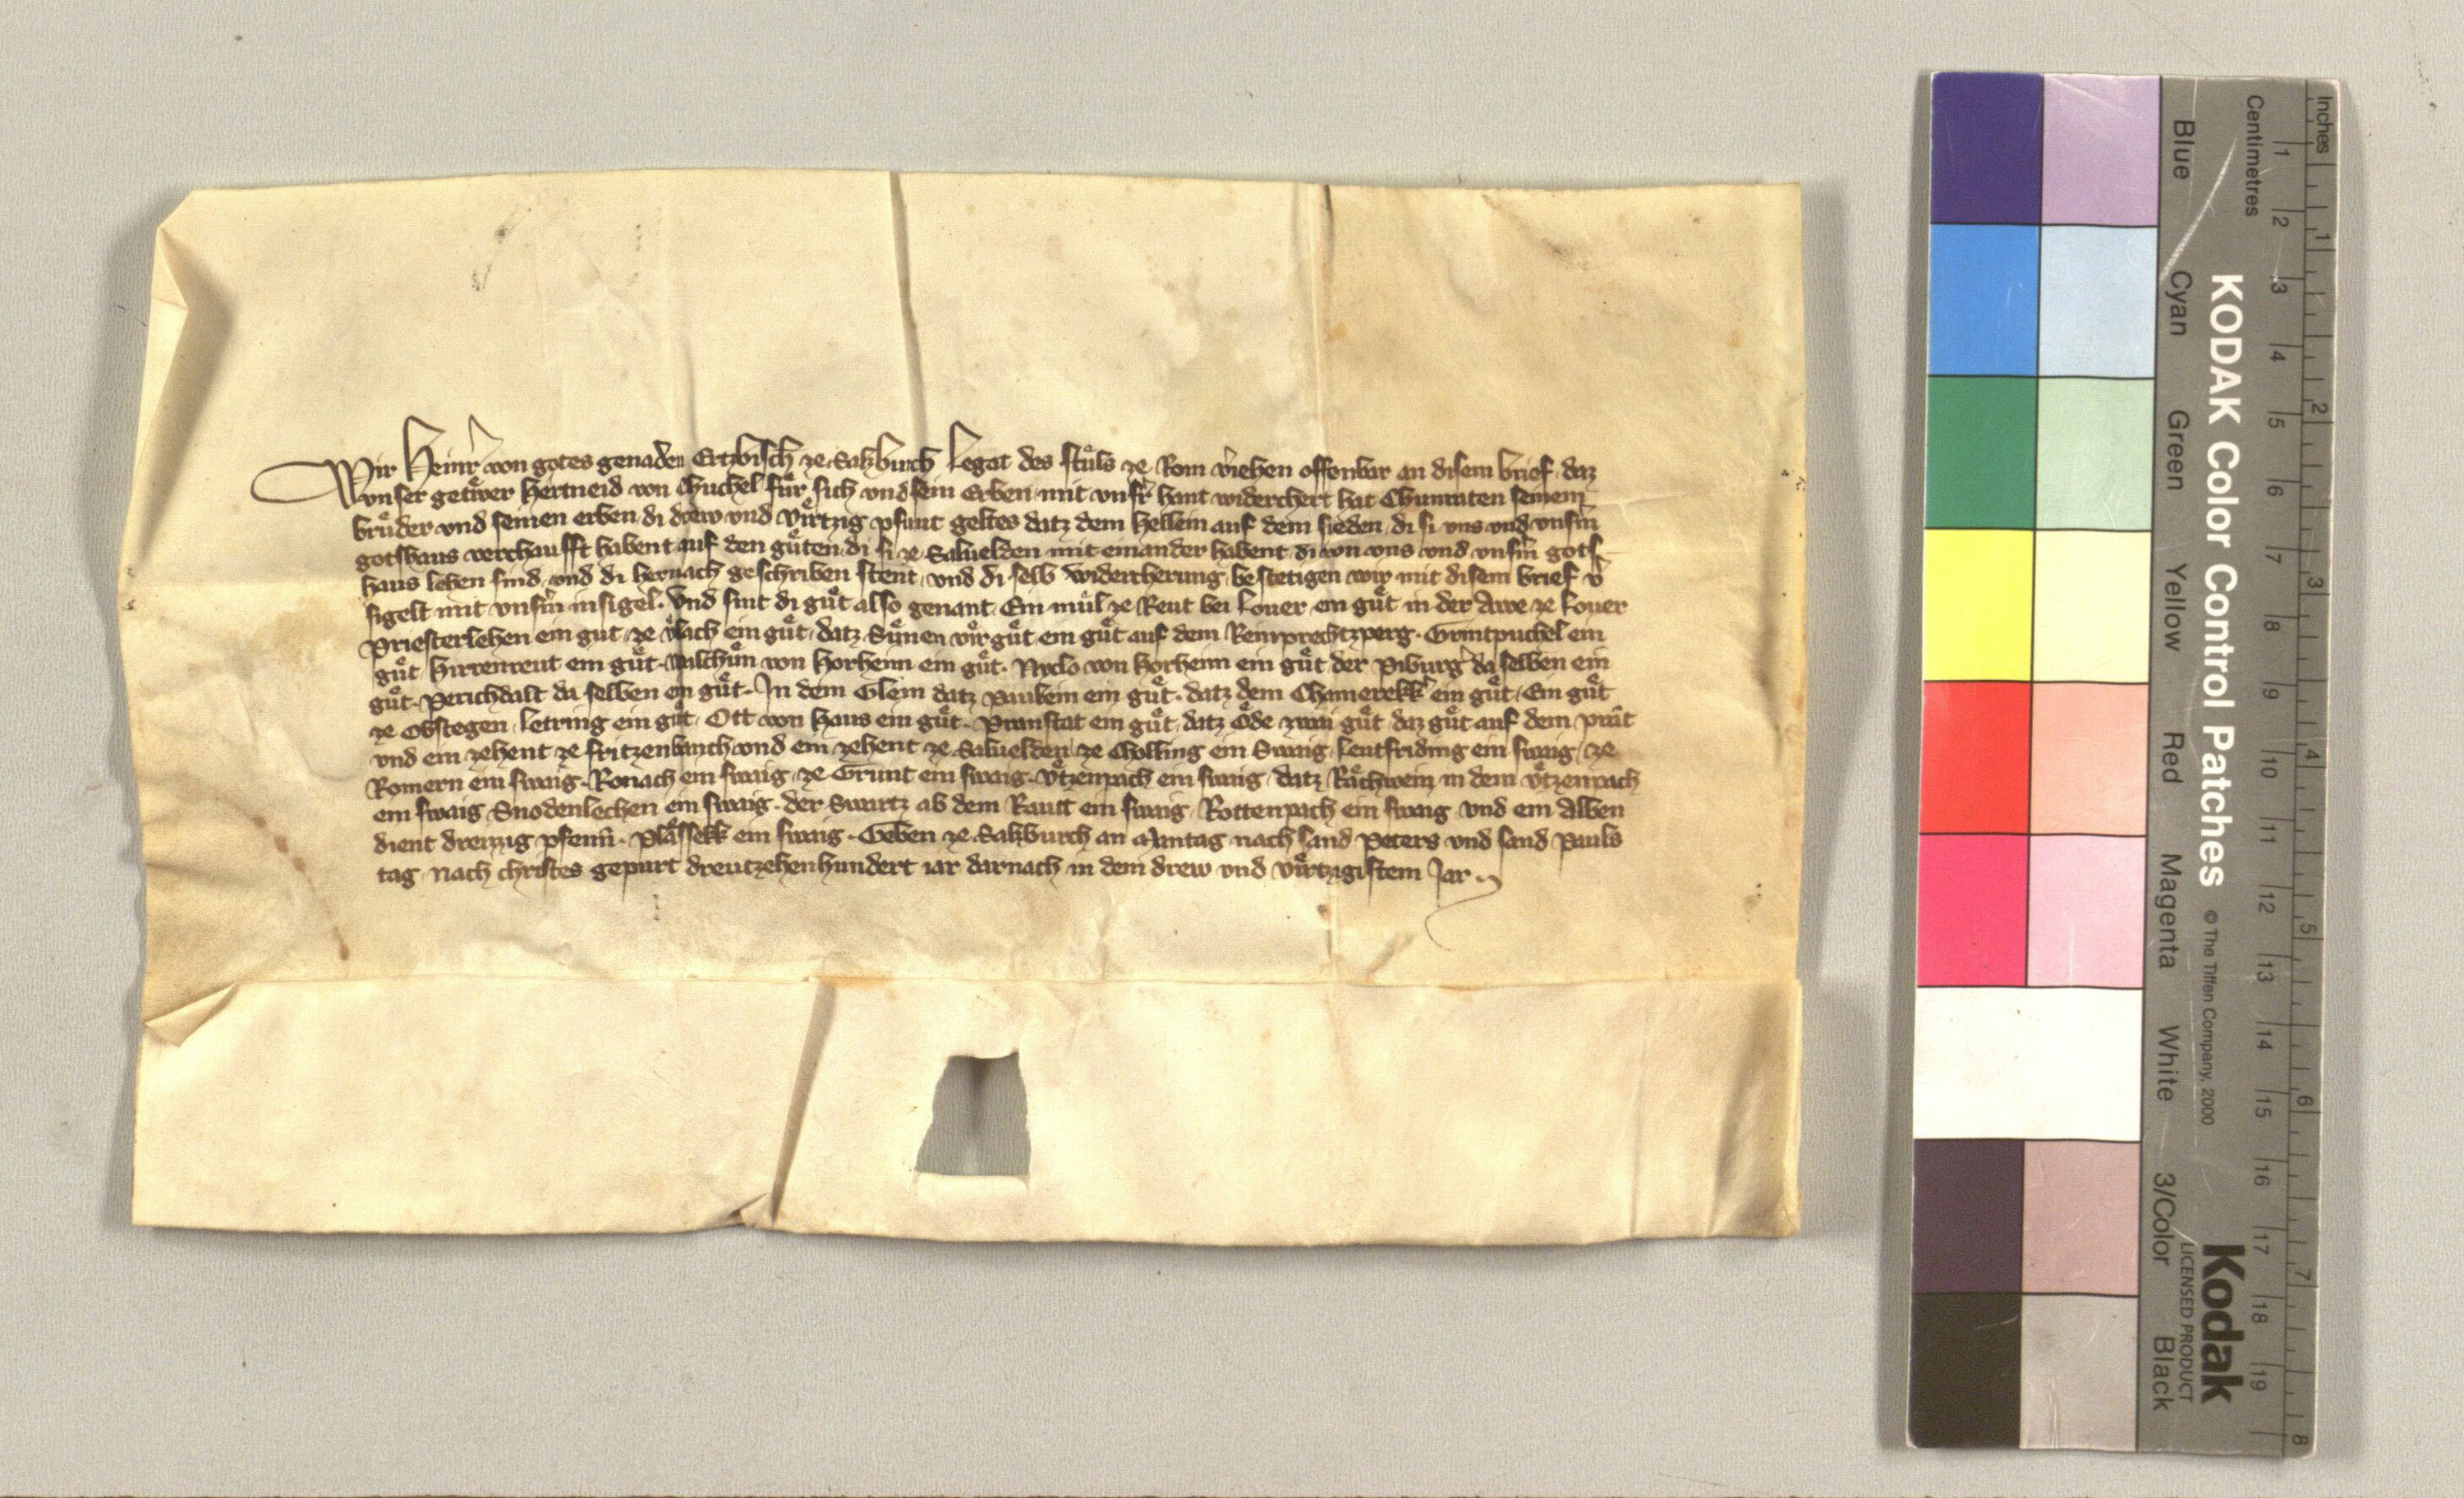 Wir Heinr̄ von gotes genaden Ertzbisch ze Saltzburch Legat des stůls ze Rom v̄iehen offenbar an disem brief daz
unser getrwer Hertneid von Chuchel fuͤr sich und sein Erben mit unsr̄ hant widerchert hat Chunraten seinem
brůder und seinen erben di drew und viͤrtzig pfunt geltes datz dem Hellein auf dem sieden di si uns und unsm̄
gotshaus verchaufft habent auf den guͤten di si ze Salvelden mit einander habent di von uns und unsm̄ gots
haus lehen sind und di hernach geschriben stent und di selb widercherung bestetigen wir mit disem brief v̄
sigelt mit unsm̄ insigel. Und sint di guͤt also genant. Ein můl ze Reut bei Lover ein guͤt in der Awe ze Lover
Priesterlehen ein gut ze Vlach ein guͤt datz Suͤnen vir guͤt ein guͤt auf dem Reinprechtzperg. Grintpuchel ein
guͤt Hirtenreut ein guͤt Walchuͤn von Horheim ein guͤt. Nyclo von Horheim ein guͤt der Piburḡ da selben ein
guͤt. Perichdalt da selben ein guͤt. In dem Glem datz Paubem ein guͤt. datz dem Chamerekk ein guͤt Ein guͤt
ze Obstegen Letting ein guͤt Ott von Haus ein guͤt. Pranstat ein guͤt datz Öde zwai guͤt daz guͤt auf dem
und ein zehent ze Fritzenbarch und ein zehent ze Salvelden ze Cholling ein Swaig Leutfriding ein swaig ze
Romern ein swaig. Ronach ein swaig ze Grunt ein swaig. Uͤtzenpach ein swaig datz Raͤchwein in dem Uͤtzenpach
ein swaig Snodenlechen ein swaig. der Swartz ab dem Rautt ein swaig Rottenpach ein swaig und ein Alben
dient dreizzig pfenn̄. Plaͤssekk ein swaig. Geben ze Saltzburch an Mantag nach sand Peters und sand Pauls
tag nach christes gepurt dreutzehenhundert iar darnach in dem drew und viͤrtzigistem Jar
Blue
Cyan
Green
Yellow
Red
Magenta
White
3/Color
Black
KODAK Color Control Patches
© The Tiffen Company, 2000
Kodak
LICENSED PRODUCT
Centimetres
1 2 3 4 5 6 7 8 9 10 11 12 13 14 15 16 17 18 19
Inches
1 2 3 4 5 6 7 8